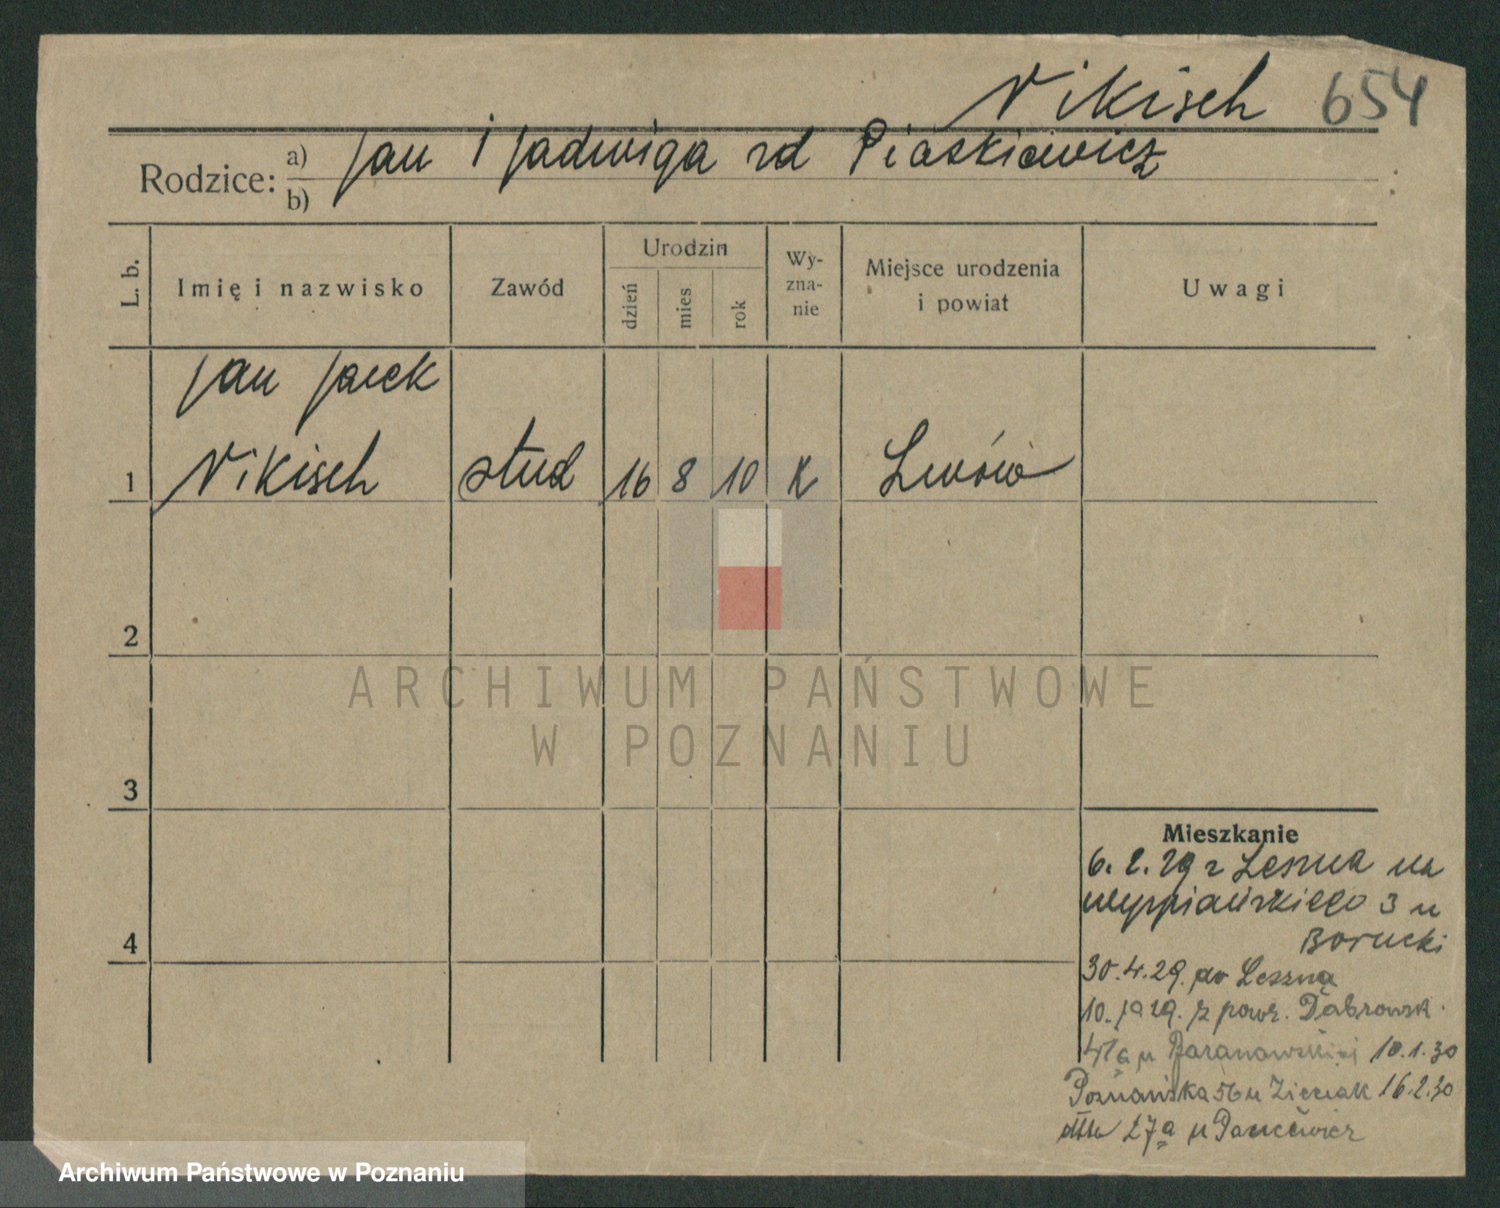 Nikisch 654
Rodzice: a) b) Jan i Jadwiga rd Piaskiewicz
L. b.
Imię i nazwisko
Zawód
Urodzin
dzień
mies
rok
Wy-
zna-
nie
Miejsce urodzenia
i powiat
Uwagi
Jan Jacek
1 Nikisch stud 16 8 10 K Lwów
2
3
4
Mieszkanie
6. 2. 29 z Leszna na
Wyspiańskiego 3 u
Borucki
30.4.29. do Leszna
10. 29. z powr. Dąbrowsk.
u Baranowski 10.1.30
Poznańska 56 u Zieciak 16.2.30
27a u
ARCHIWUM PAŃSTWOWE
W POZNANIU
Archiwum Państwowe w Poznaniu